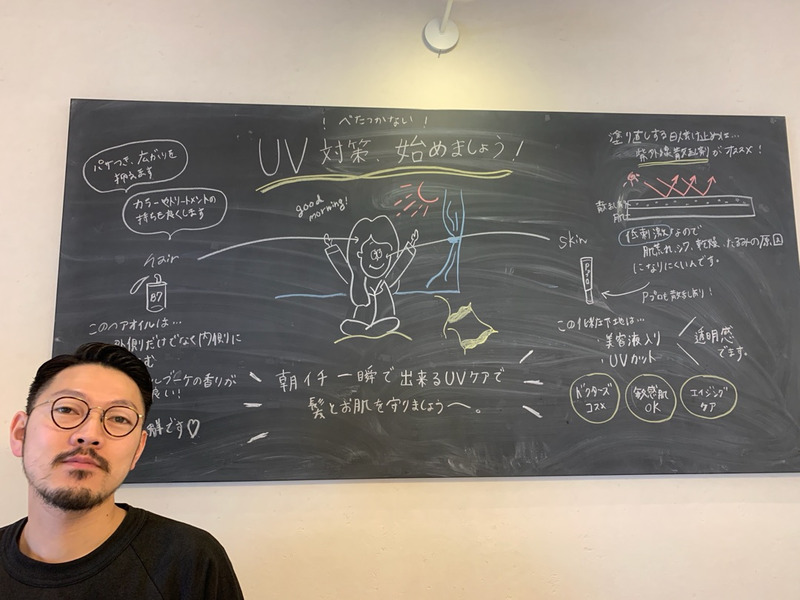 ！べたつかない！
UV対策、始めましょう！
パサつき、広がりを
抑えます
カラーやトリートメントの
持ちを良くします
hair
B7
このヘアオイルは…
外側だけでなく内側に
ブーケの香りが
良い！
です♡
good
morning！
朝イチ一瞬で出来るUVケアで
髪とお肌を守りましょう〜。
塗り直しする日焼け止めは…
紫外線散乱剤がオススメ！
散乱剤
肌
低刺激なので
肌荒れ、シワ、乾燥、たるみの原因
になりにくいんです。
skin
PPro
Pプロも散乱剤！
この化粧下地は…
・美容液入り
・UVカット
透明感
でます。
ドクターズ
コスメ
敏感肌
OK
エイジング
ケア